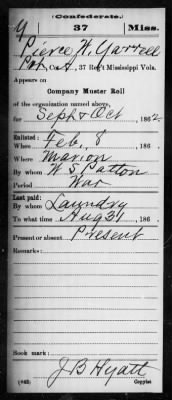 (Confederate.)
Y 37 Miss.
Pierce W. Yarrell
Pvt, Co. A, 37 Reg't Mississippi Vols.
Appears on
Company Muster Roll
of the organization named above,
for Sept & Oct, 1862
Enlisted:
When Feb, 8, 186 .
Where Marion
By whom W S Patton
Period War
Last paid:
By whom Laundry
To what time Aug 31, 186 .
Present or absent Present
Remarks:
Book mark:
J B Hyatt
(642) Copyist